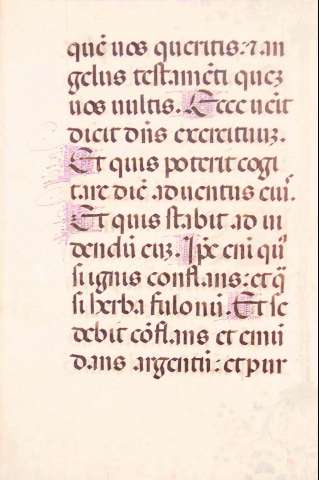 quē uos queritis: ⁊ an
gelus testamēti quez
uos uultis. Ecce uēit
dicit dn̄s exercituuz.
Et quis poterit cogi
tare diē aduentus eiuˀ.
Et quis stabit ad ui
dendū euz. Ip̄e eni quˀi
si ignis conflans: et q̄
si herba fulonū. Et se
debit cōflans et emū
dans argentū: et pur